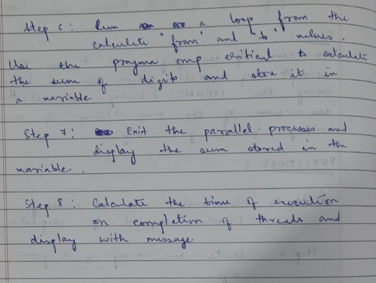 Step 6: Run a loop from the
calculate "from" and "to" values.
Use the pragma omp critical to calculate
the sum of digits and store it in
a variable
Step 7: Exit the parallel processes and
display the sum stored in the
variable.
Step 8: Calculate the time of execution
on completion of threads and
display with message